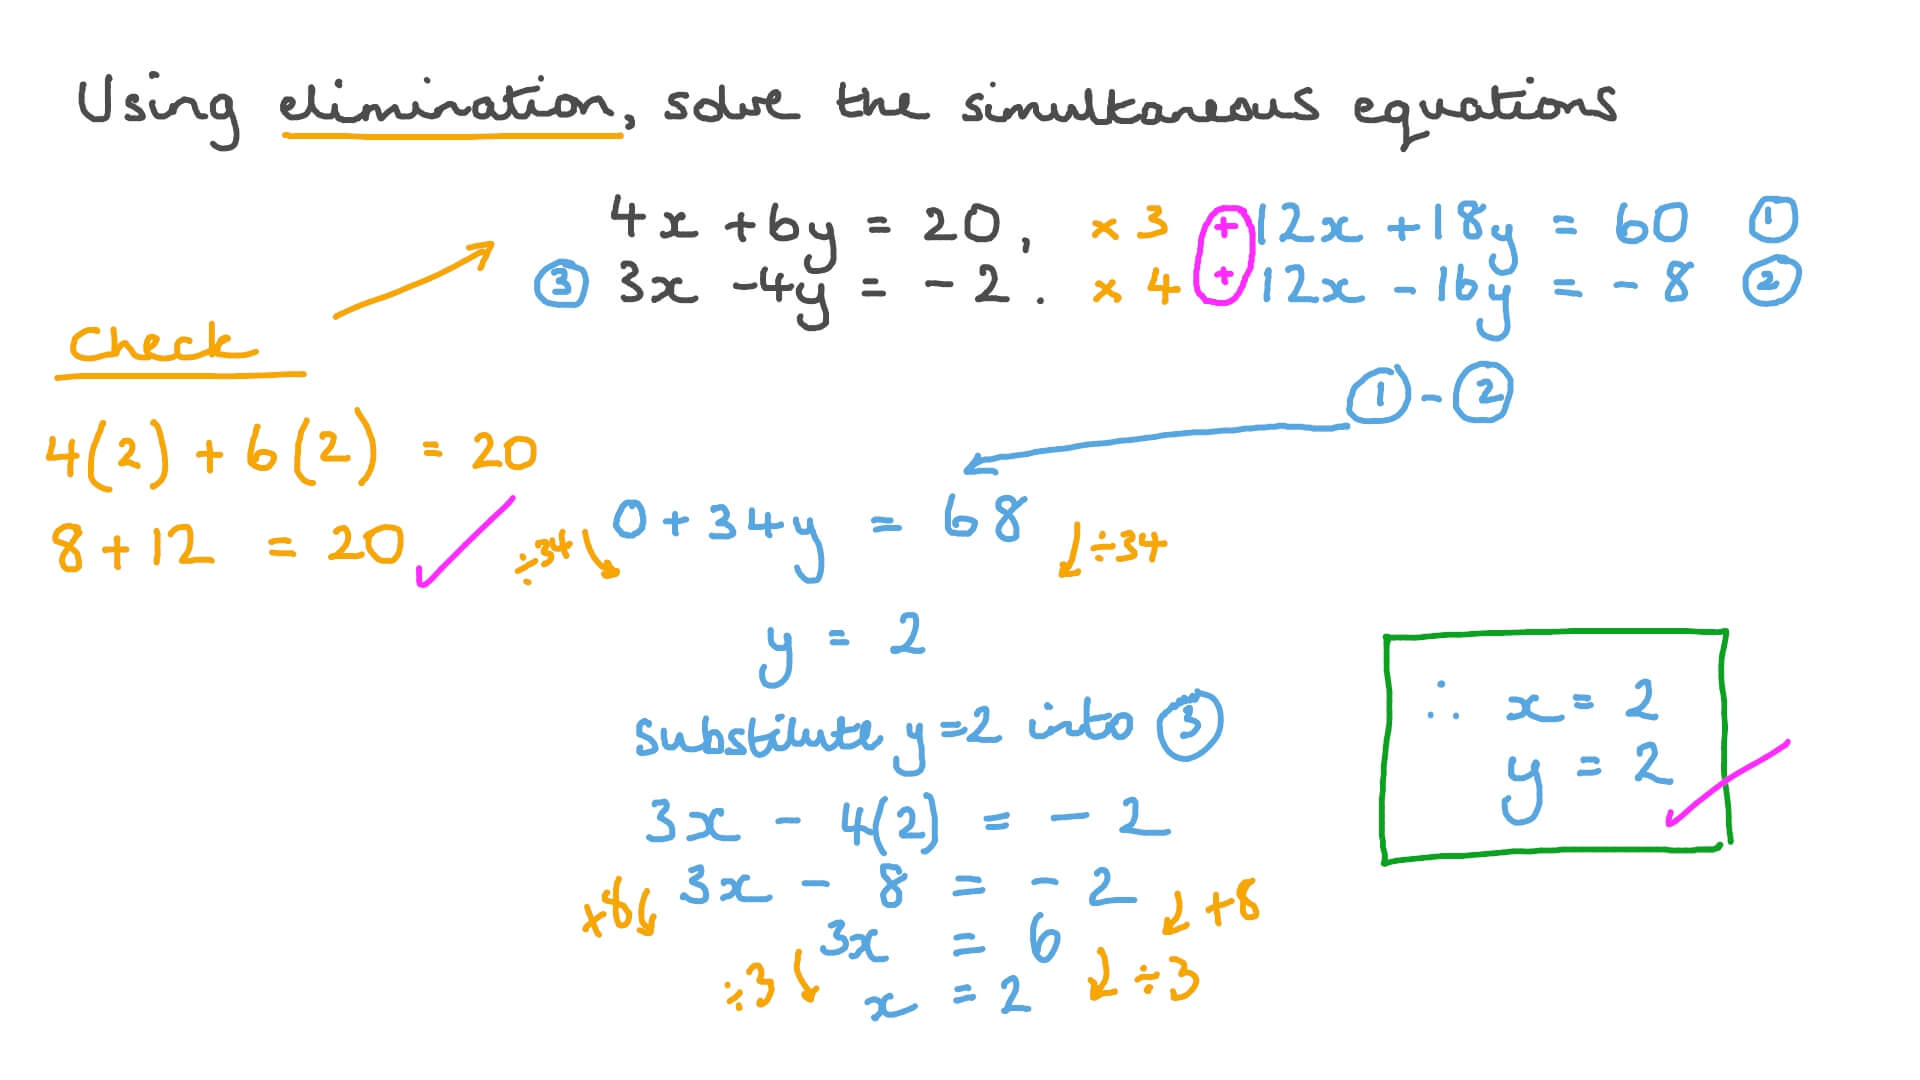 Using elimination, solve the simultaneous equations
4x + 6y = 20, × 3 + 12x + 18y = 60 ①
③ 3x - 4y = - 2. × 4 + 12x - 16y = - 8 ②
① - ②
Check
4(2) + 6(2) = 20
8 + 12 = 20
÷34 0 + 34y = 68 ÷34
y = 2
substitute y = 2 into ③
3x - 4(2) = - 2
+8 3x - 8 = - 2 +8
3x = 6
÷3 x = 2 ÷3
∴ x = 2
y = 2